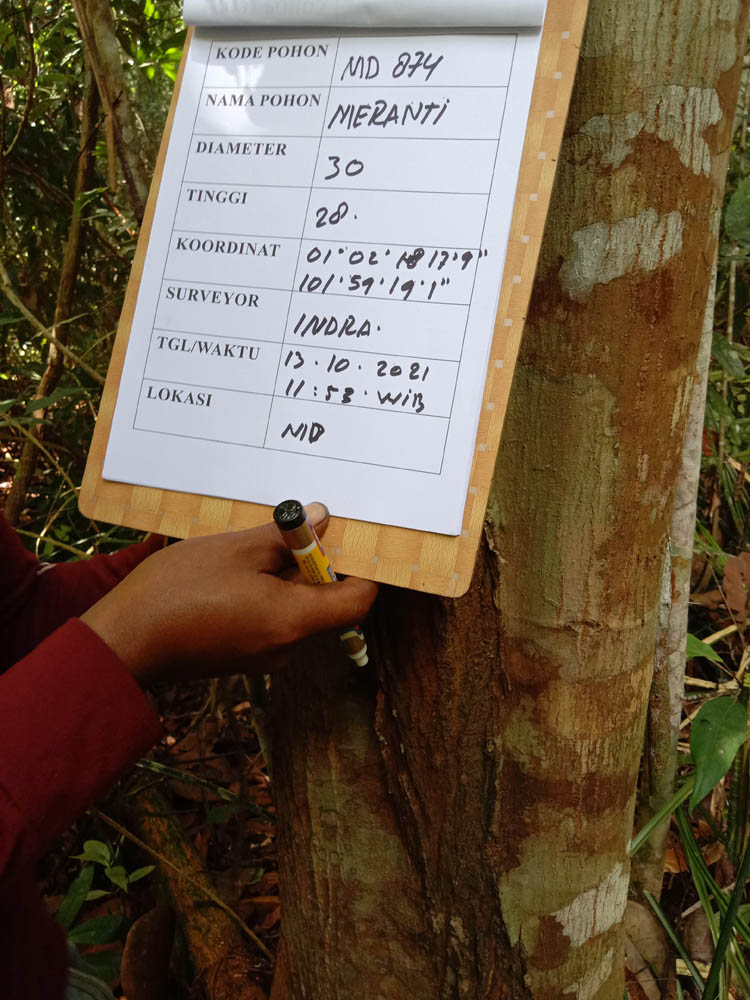 KODE POHON MD 874
NAMA POHON MERANTI
DIAMETER 30
TINGGI 28.
KOORDINAT 01°02' 17'9"
101°59'19'1"
SURVEYOR INDRA.
TGL/WAKTU 13.10.2021
11:53.WIB
LOKASI MD